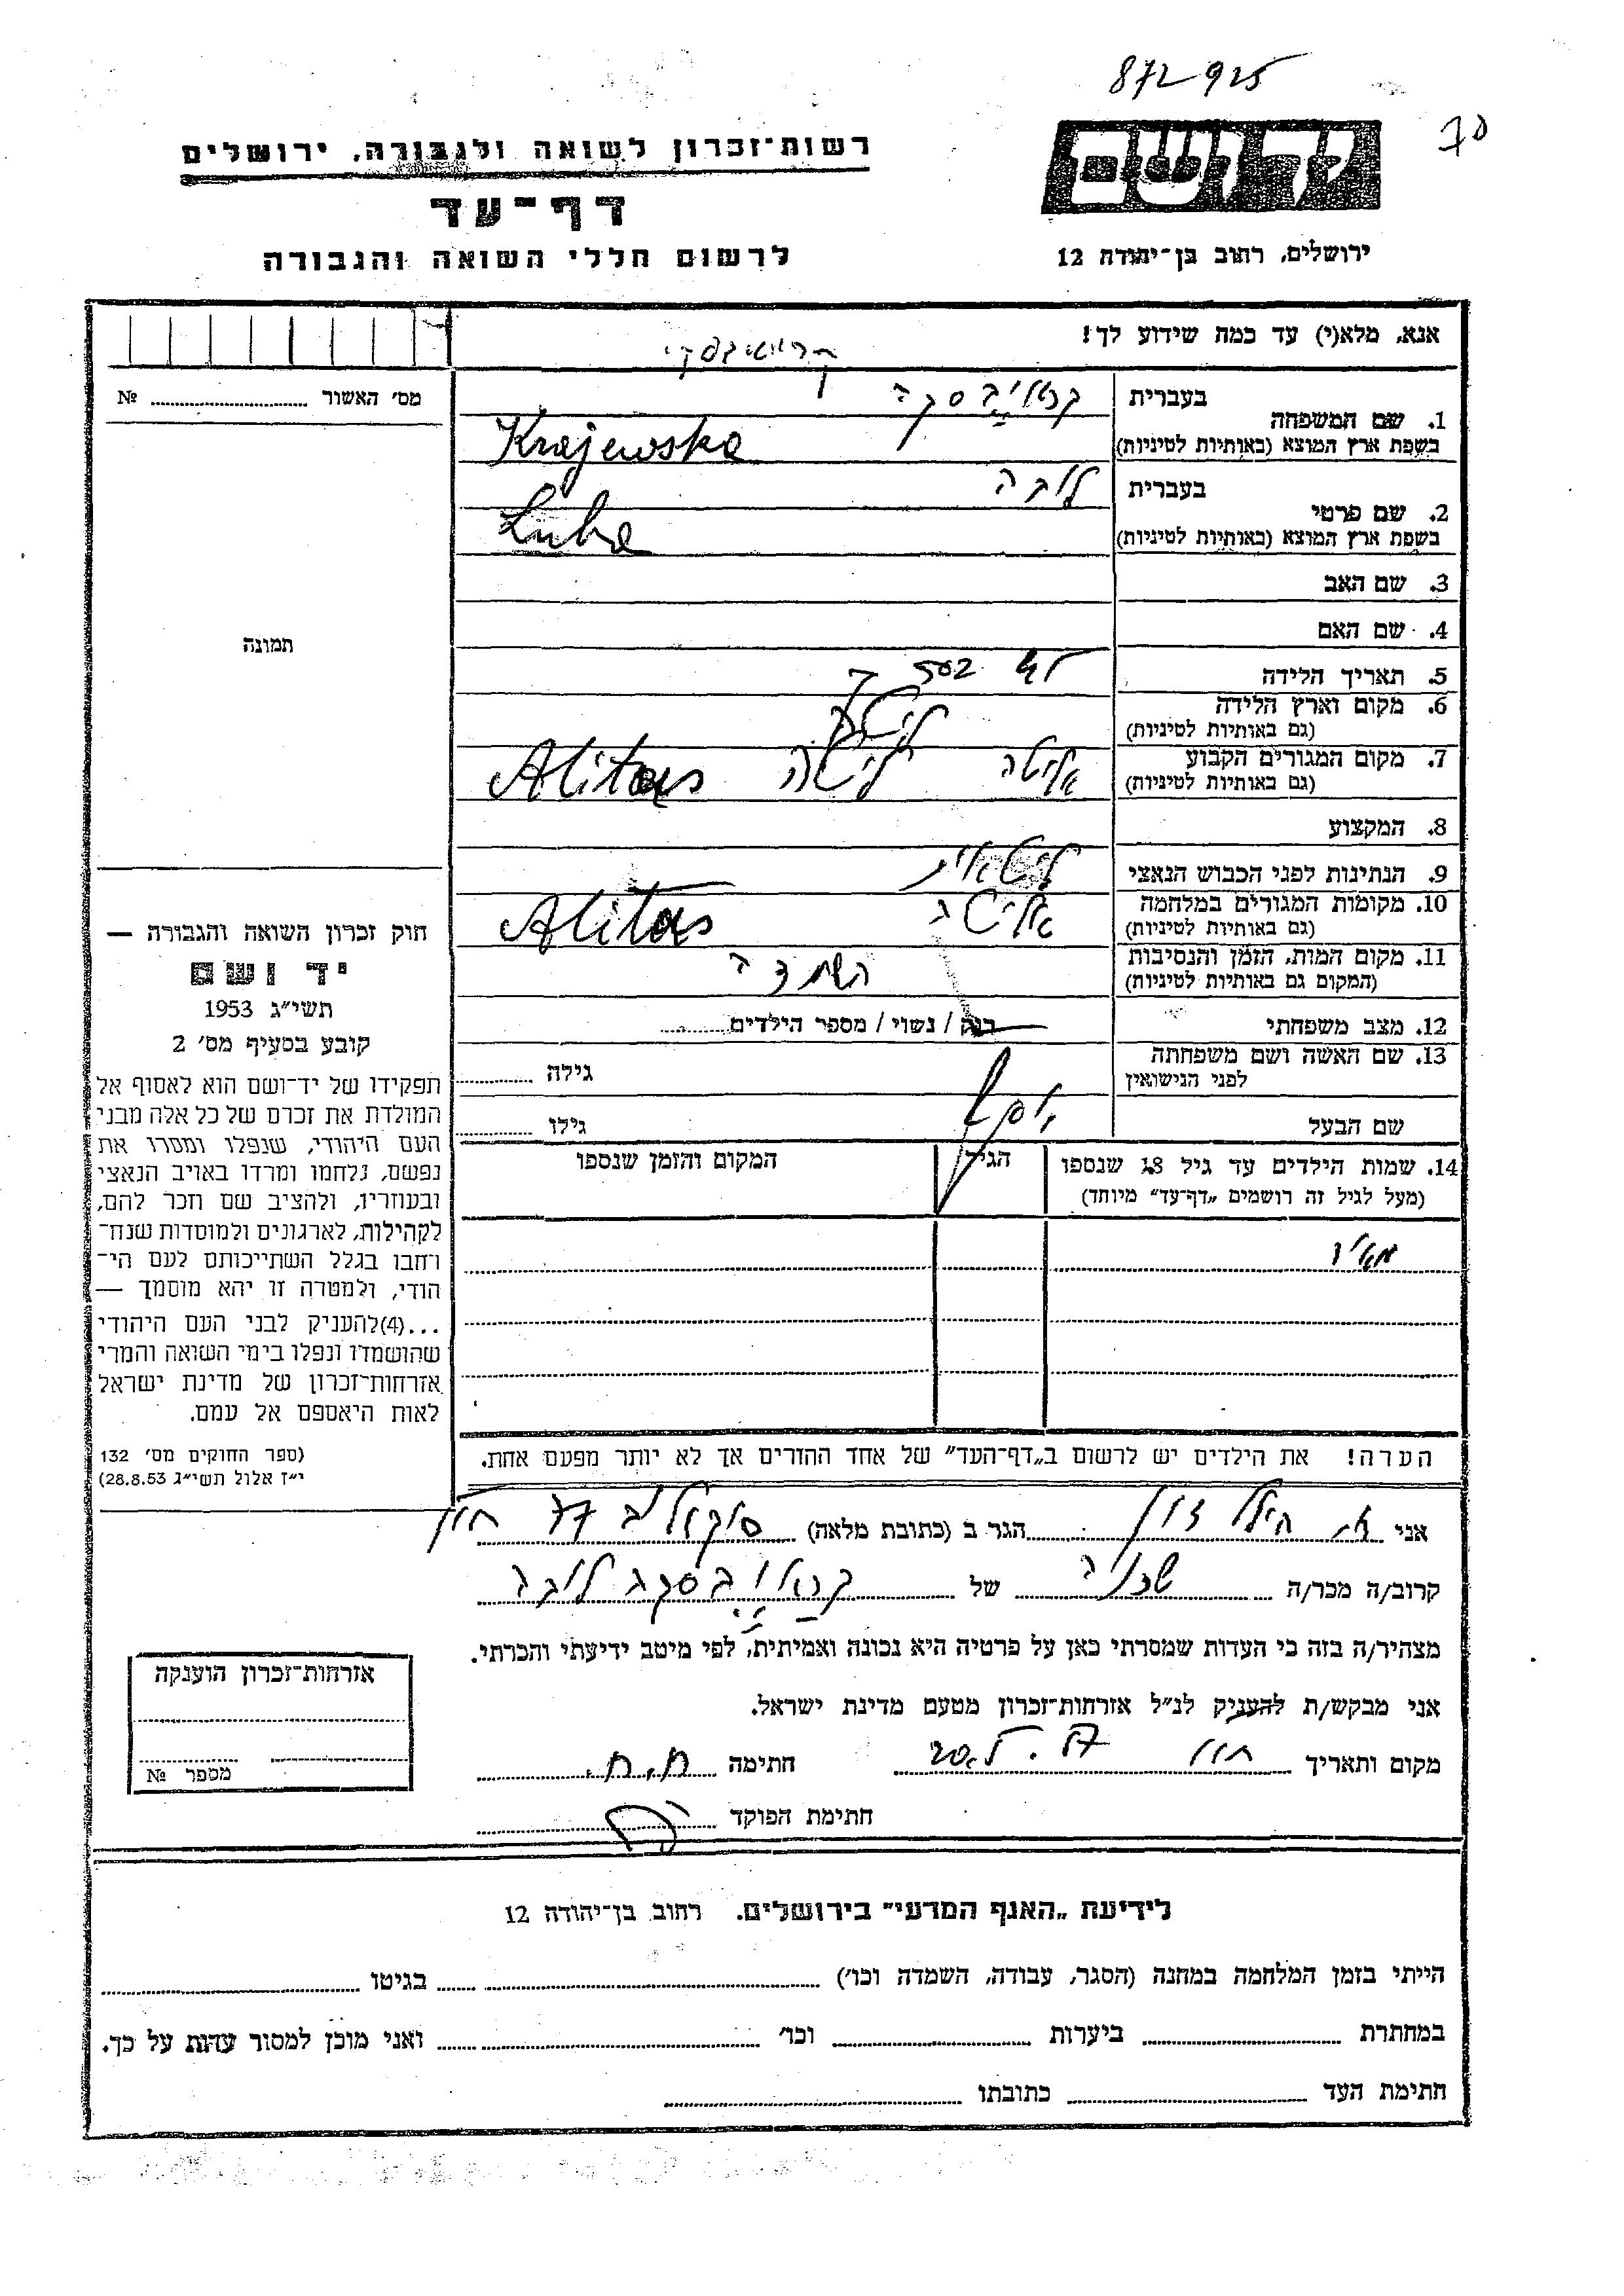 872925
רשות־זכרון לשואה ולגבורה, ירושלים
דף־עד
לרשום חללי השואה והגבורה
יד ושם
ירושלים, רחוב בן־יהודה 12
אנא, מלא(י) עד כמה שידוע לך!
מס׳ האשור № 
1. שם המשפחה
בעברית
בשפת ארץ המוצא (באותיות לטיניות) Krajewska
2. שם פרטי
בעברית לובה
בשפת ארץ המוצא (באותיות לטיניות) Luba
3. שם האב
4. שם האם
5. תאריך הלידה
6. מקום וארץ הלידה
(גם באותיות לטיניות) ליטא
7. מקום המגורים הקבוע
(גם באותיות לטיניות) אליטה ליטה Alitas
8. המקצוע
9. הנתינות לפני הכבוש הנאצי ליטאית
10. מקומות המגורים במלחמה
(גם באותיות לטיניות) אליטה Alitas
11. מקום המות, הזמן והנסיבות
(המקום גם באותיות לטיניות) השמדה
12. מצב משפחתי רוק / נשוי / מספר הילדים
13. שם האשה ושם משפחתה
לפני הנישואין
גילה
שם הבעל יוסף גילו
14. שמות הילדים עד גיל 18 שנספו
(מעל לגיל זה רושמים „דף־עד״ מיוחד)
הגיל
המקום והזמן שנספו
הערה! את הילדים יש לרשום ב„דף־העד״ של אחד ההורים אך לא יותר מפעם אחת.
תמונה
חוק זכרון השואה והגבורה —
יד ושם
תשי״ג 1953
קובע בסעיף מס׳ 2
תפקידו של יד־ושם הוא לאסוף אל
המולדת את זכרם של כל אלה מבני
העם היהודי, שנפלו ומסרו את
נפשם, נלחמו ומרדו באויב הנאצי
ובעוזריו, ולהציב שם וזכר להם,
לקהילות, לארגונים ולמוסדות שנח־
רחבו בגלל השתייכותם לעם הי־
הודי, ולמטרה זו יהא מוסמך —
...(4) להעניק לבני העם היהודי
שהושמדו ונפלו בימי השואה והמרי
אזרחות־זכרון של מדינת ישראל
לאות היאספם אל עמם.
(ספר החוקים מס׳ 132
י״ז אלול תשי״ג 28.8.53)
אני הגר ב (כתובת מלאה) סוקולוב 77 חולון
קרוב/ה מכר/ה שכניה של קראייבסקה לובה
מצהיר/ה בזה כי העדות שמסרתי כאן על פרטיה היא נכונה ואמיתית, לפי מיטב ידיעתי והכרתי.
אני מבקש/ת להעניק לנ״ל אזרחות־זכרון מטעם מדינת ישראל.
מקום ותאריך חתימה
חתימת הפוקד
אזרחות־זכרון הוענקה
מספר №
לידיעת „האגף המדעי״ בירושלים. רחוב בן־יהודה 12
הייתי בזמן המלחמה במחנה (הסגר, עבודה, השמדה וכו׳) בגיטו
במחתרת ביערות וכו׳ ואני מוכן למסור עדות על כך.
חתימת העד כתובתו